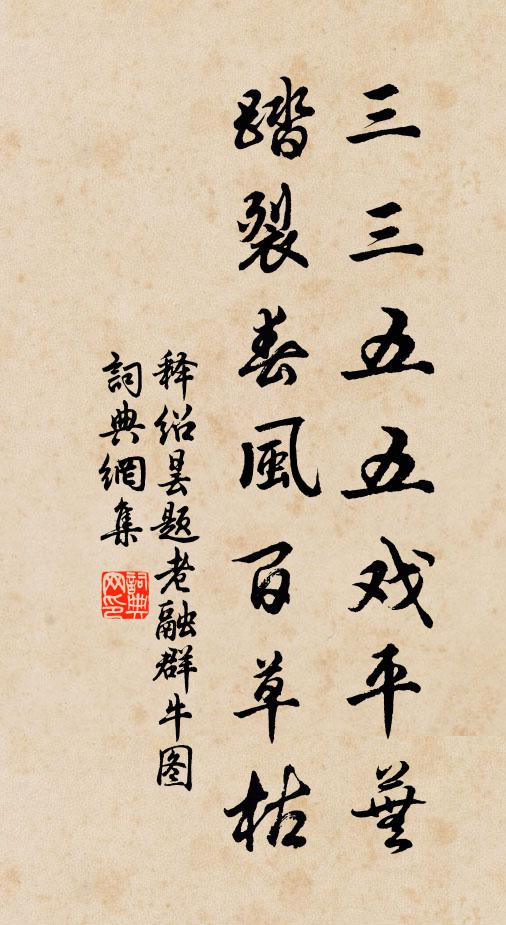 三三五五戏平蕪
踏裂春風百草枯
释绍昙题老融群牛图
詞典網集
詞典网印